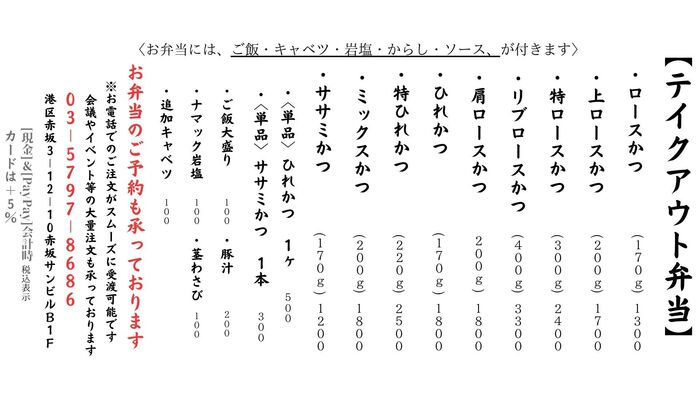 【テイクアウト弁当】
〈お弁当には、ご飯・キャベツ・岩塩・からし・ソース、が付きます〉
・ロースかつ (170g) 1300
・上ロースかつ (200g) 1700
・特ロースかつ (300g) 2400
・リブロースかつ (400g) 3300
・肩ロースかつ 200g) 1800
・ひれかつ (170g) 1800
・特ひれかつ (220g) 2500
・ミックスかつ (200g) 1800
・ササミかつ (170g) 1200
・〈単品〉ひれかつ 1ヶ 500
・〈単品〉ササミかつ 1本 300
・ご飯大盛り 100 ・豚汁 200
・ナマック岩塩 100 ・茎わさび 100
・追加キャベツ 100
お弁当のご予約も承っております
※お電話でのご注文がスムーズに受渡可能です
会議やイベント等の大量注文も承っております
03-5797-8686
港区赤坂3-12-10赤坂サンビルB1F
[現金]&[PayPay]会計時 税込表示
カードは+5%